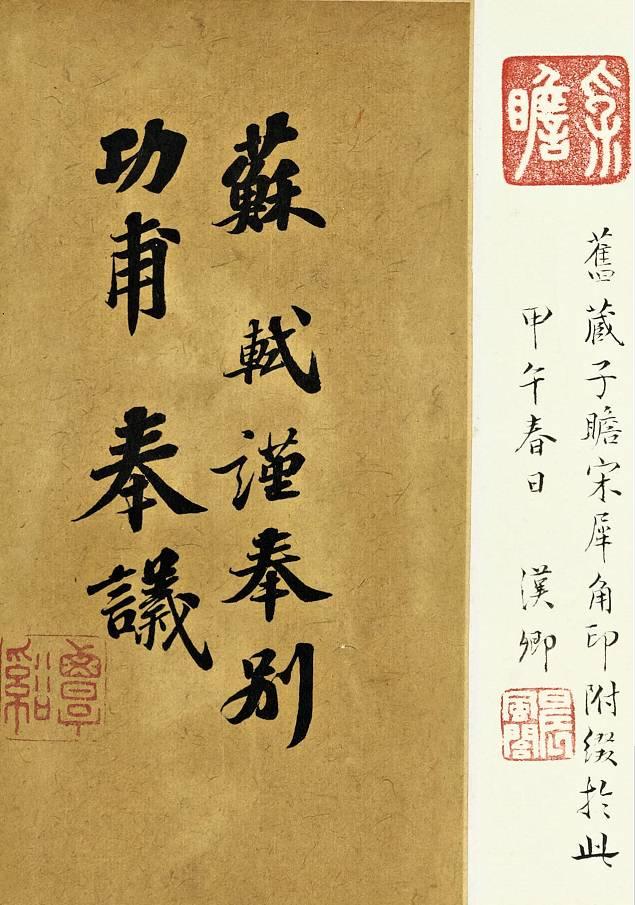 子瞻
舊藏子瞻宋犀角印附綴於此
甲午春日 漢卿
蘇軾謹奉別
功甫奉議